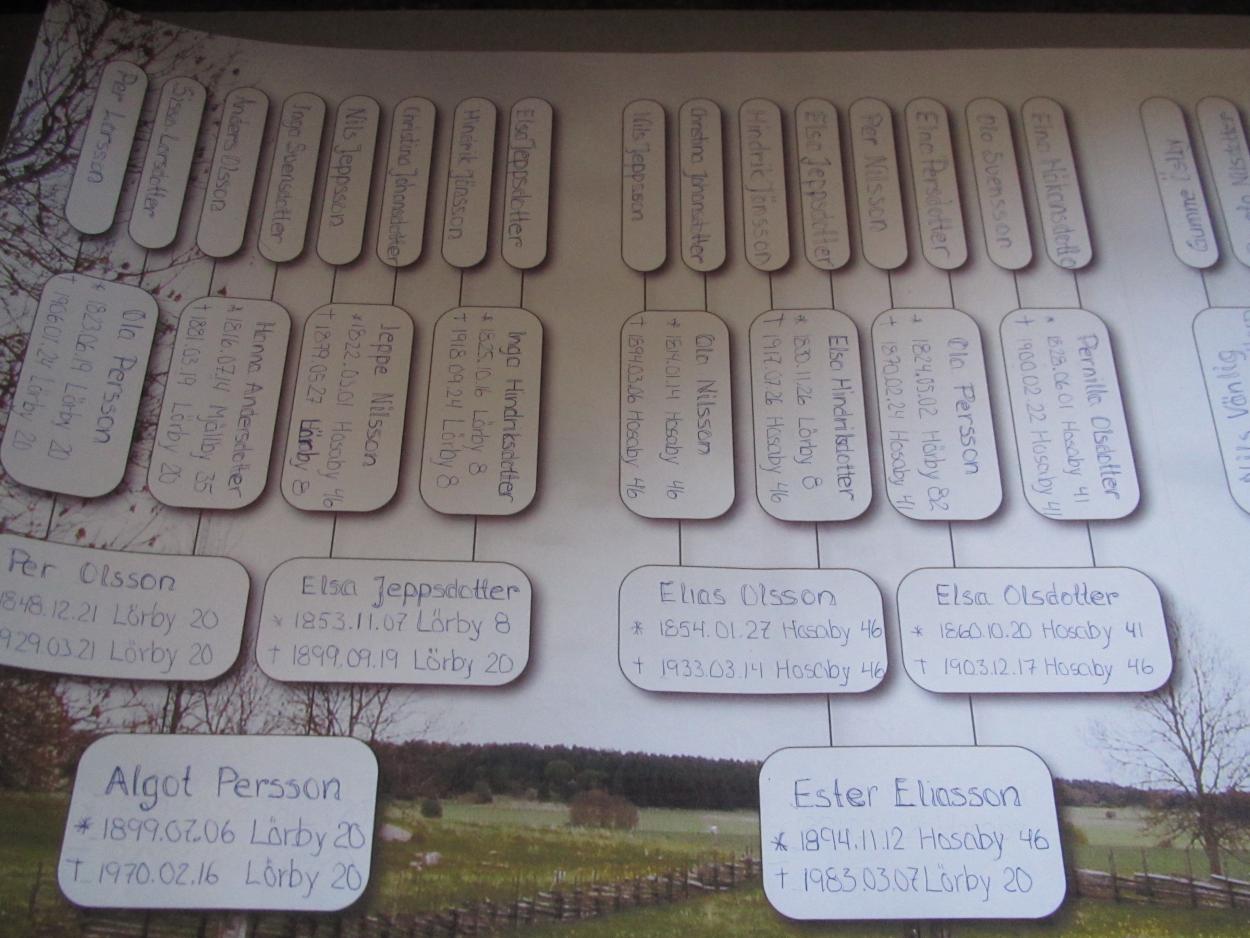 Per Larsson
Sissa Larsdotter
Anders Olsson
Inga Svensdotter
Nils Jeppsson
Christina Johansdotter
Hindrik Jönsson
Elsa Jeppsdotter
Nils Jeppsson
Christina Johansdotter
Hindrik Jönsson
Elsa Jeppsdotter
Per Nilsson
Elna Persdotter
Ola Svensson
Elna Håkansdotte
Ola Persson
* 1823.06.19 Lörby 20
† 1906.01.24 Lörby 20
Hanna Andersdotter
* 1816.07.14 Mjällby 35
† 1881.03.19 Lörby 20
Jeppe Nilsson
* 1822.03.01 Hosaby 46
† 1899.05.27 Lörby 8
Inga Hindriksdotter
* 1825.10.16 Lörby 8
† 1918.09.24 Lörby 8
Ola Nilsson
* 1814.01.14 Hosaby 46
† 1894.03.06 Hosaby 46
Elsa Hindriksdotter
* 1830.11.26 Lörby 8
† 1917.07.26 Hosaby 46
Ola Persson
* 1824.05.02 Hörby 82
† 1870.02.24 Hosaby 41
Pernilla Olsdotter
* 1828.06.01 Hosaby 41
† 1900.02.22 Hosaby 41
Per Olsson
1848.12.21 Lörby 20
1929.03.21 Lörby 20
Elsa Jeppsdotter
* 1853.11.07 Lörby 8
† 1899.09.19 Lörby 20
Elias Olsson
* 1854.01.27 Hosaby 46
† 1933.03.14 Hosaby 46
Elsa Olsdotter
* 1860.10.20 Hosaby 41
† 1903.12.17 Hosaby 46
Algot Persson
* 1899.07.06 Lörby 20
† 1970.02.16 Lörby 20
Ester Eliasson
* 1894.11.12 Hosaby 46
† 1983.03.07 Lörby 20